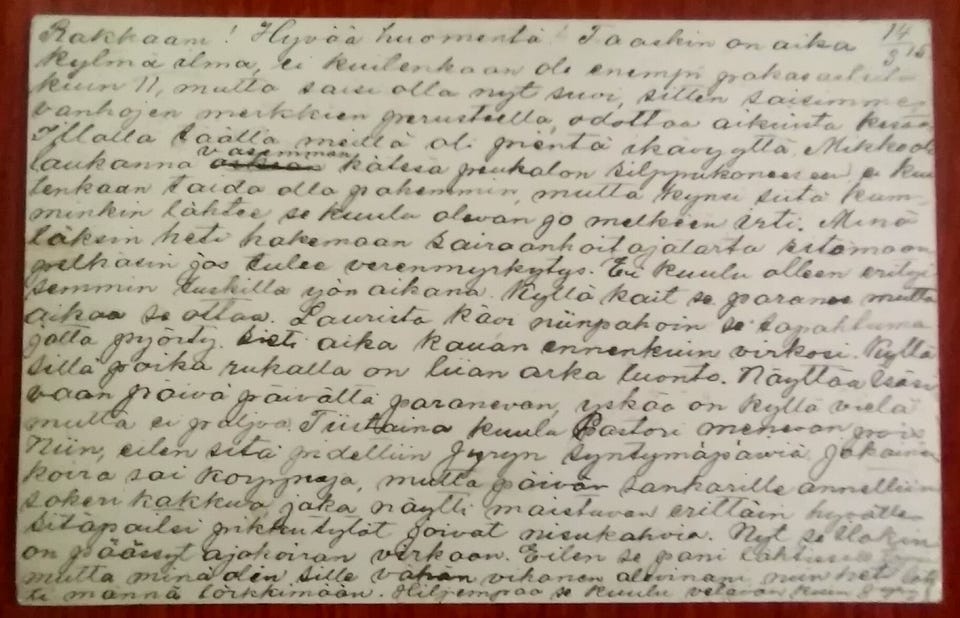 Rakkaani! Hyvää huomenta! Taaskin on aika 14/3 15
kylmä ilma, ei kuitenkaan ole enempi
kuin 11, mutta saisi olla nyt suvi, sitten saisimme
vanhojen merkkien perusteella, odottaa aikuista kesää
Illalla täällä meillä oli pientä ikävyyttä. Mikko oli
laukanna vasemman kätesä peukalon silppukoneesen ei kui
tenkaan taida olla pahemmin, mutta kynsi siitä kum-
minkin lähtee, se kuulu olevan jo melkeen irti. Minä
läksin heti hakemaan sairaanhoitajalarta
pelkäsin jos tulee verenmyrkytys. Ei kuulu olleen erityi
semmin tuskilla yön aikana. Kyllä kait se paranee mutta
aikaa se ottaa. Laurista kävi niinpahoin se tapahtuma
jotta pyörty. Sieti aika kauan ennenkuin virkosi. Kyllä
sillä poika rukalla on liian arka luonto. Näyttää Isäsi
vaan päivä päivältä paranevan, yskää on kyllä vielä
mutta ei paljoa. Tiistaina kuulu Pastori menevän pois
Niin, eilen sitä pidettiin Jyryn syntymäpäiviä. Jokainen
koira sai korppuja, mutta päivän sankarille annettiin
sokeri kakkua, joka näytti maistuvan erittäin hyvälle
sitäpaitsi pikkutytöt joivat nisukahvia. Nyt se
on päässyt ajokoiran virkaan. Eilen se pani
mutta minä olin sille vähän vihanen olevinani, niin heti
ti männä lörkkimään. Hiljempaa se kuulu vetävän kuin Jyry